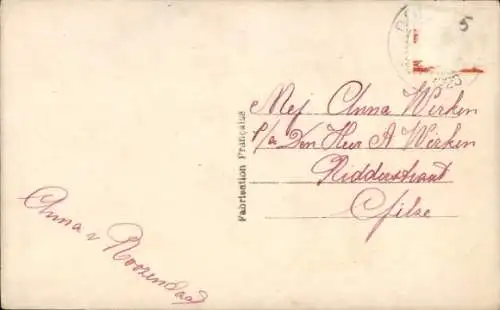 5
Mej Anna Werken
p/a Den Heer A Werken
Ridderstraat
Gilze
Fabrication Française
Anna v Roozendaal